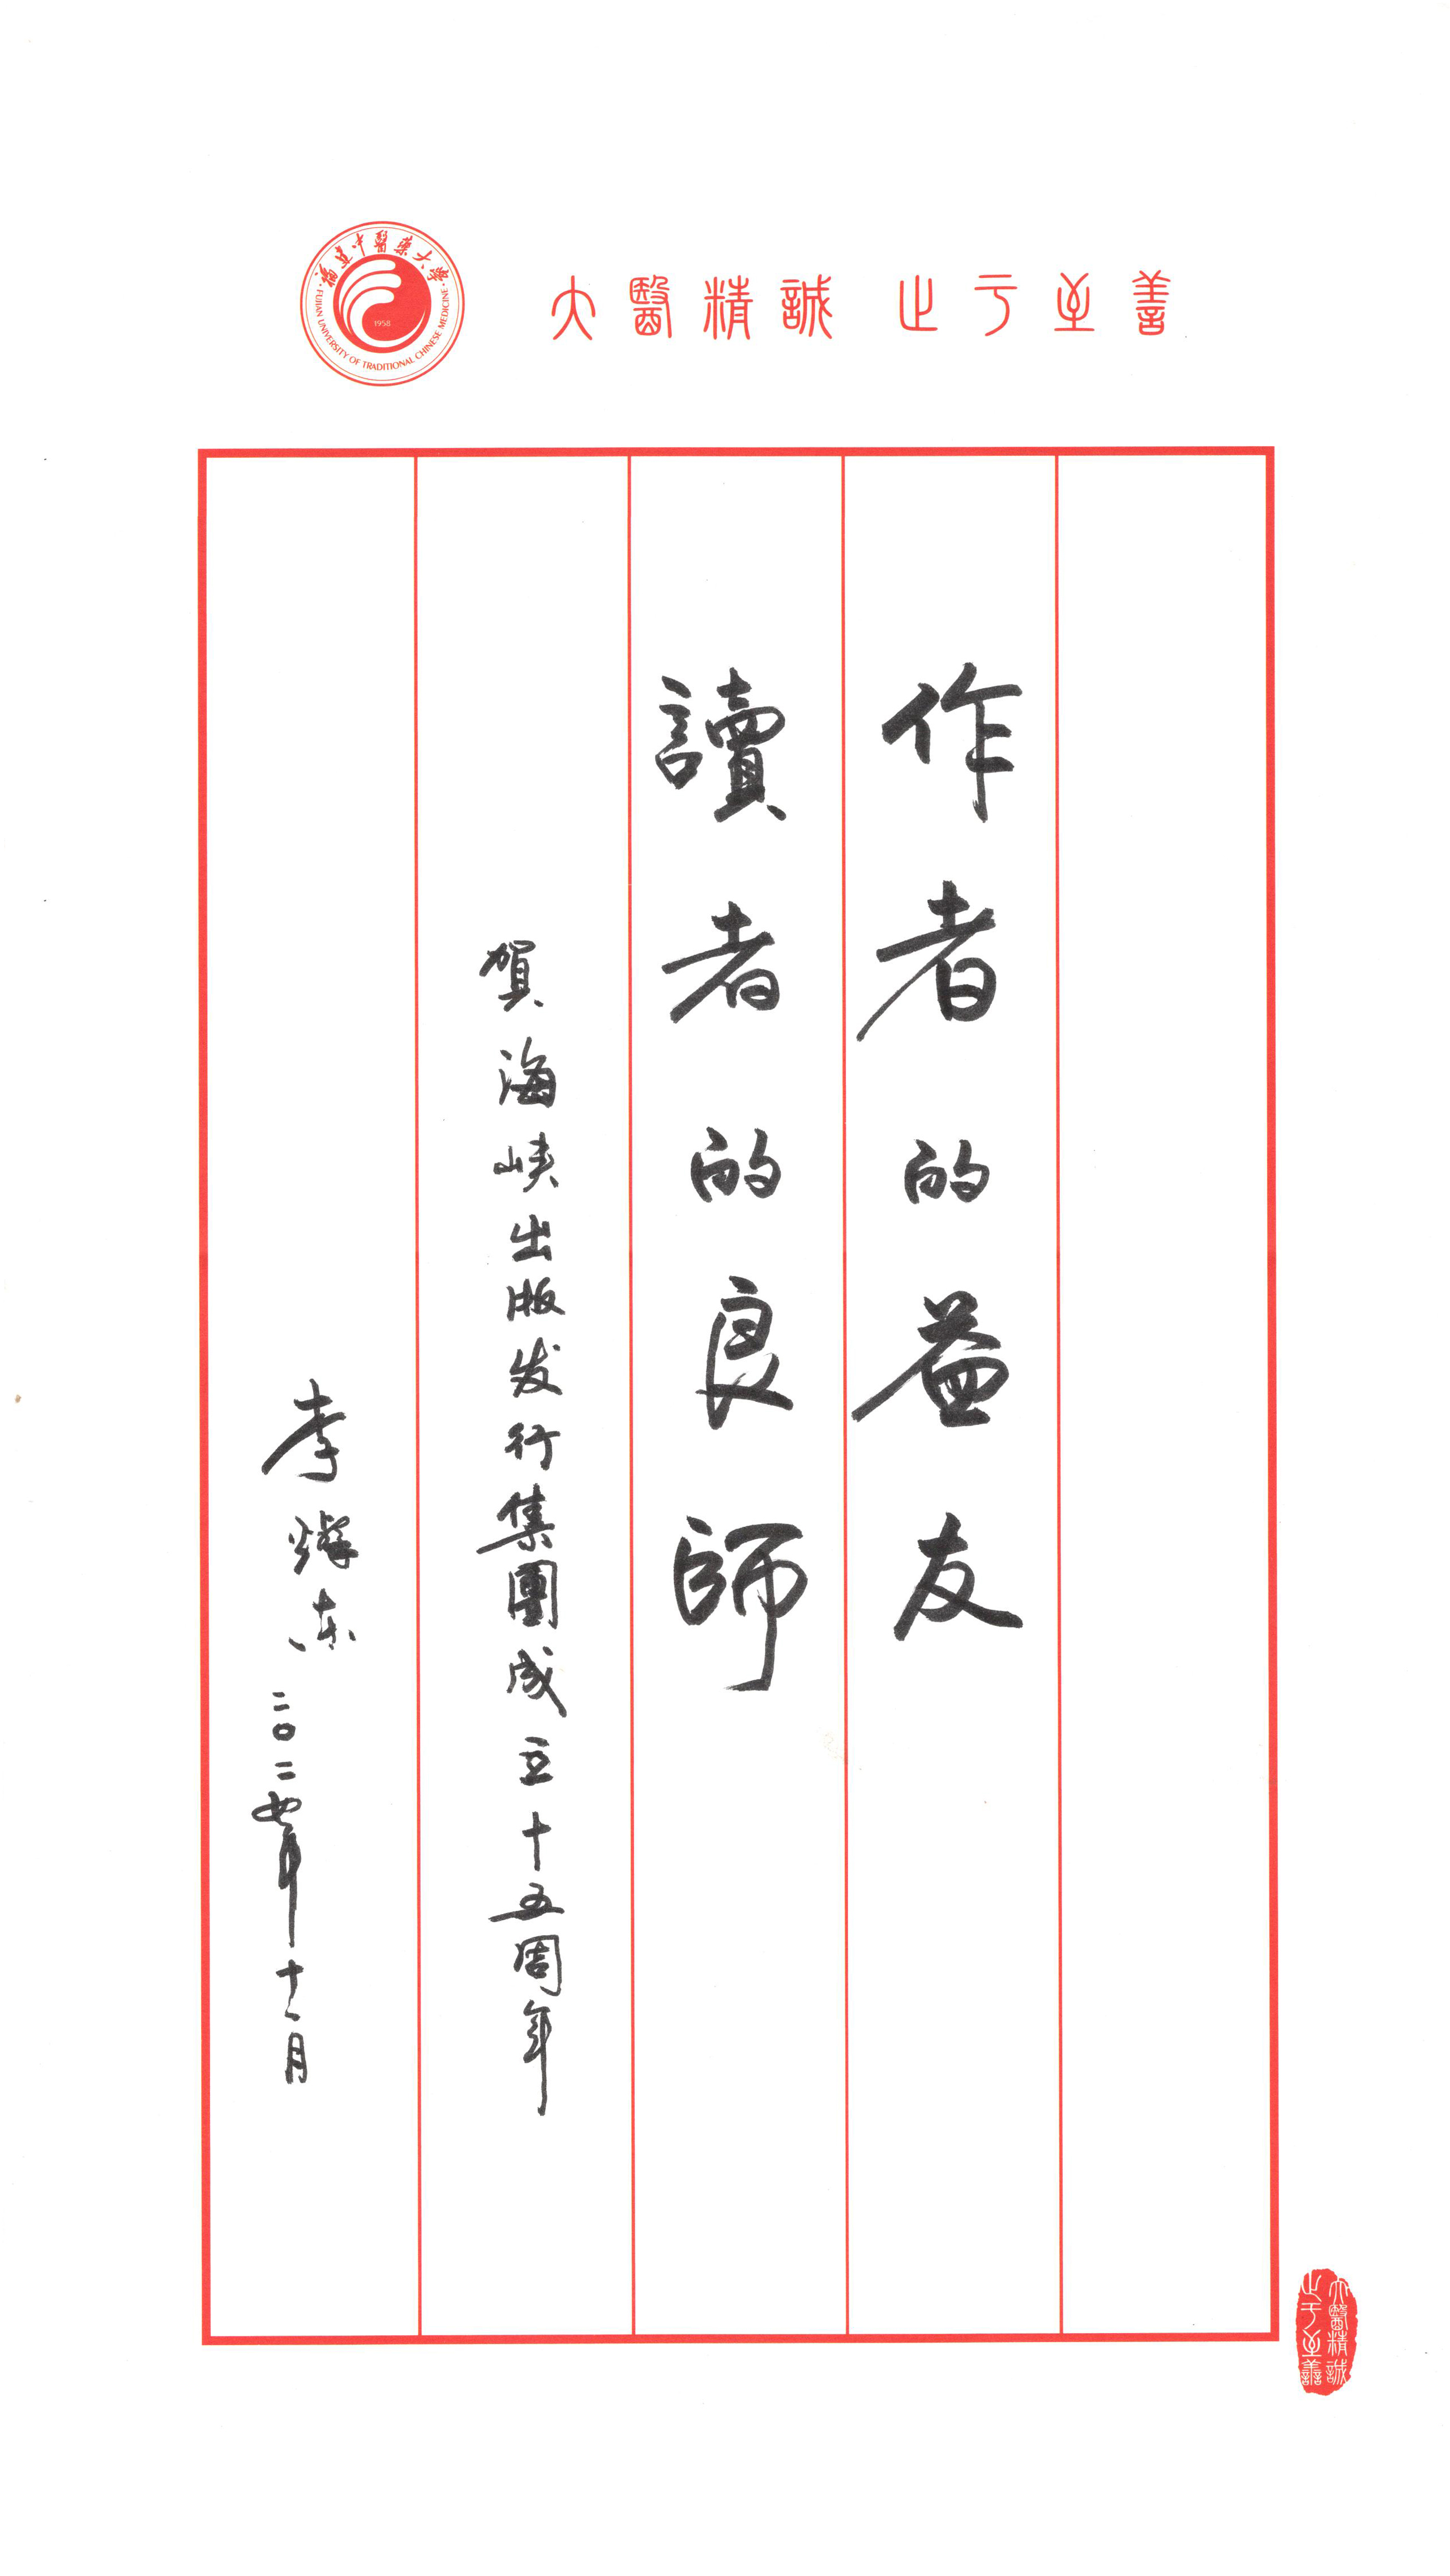 福建中醫藥大學
FUJIAN UNIVERSITY OF TRADITIONAL CHINESE MEDICINE
1958
大醫精誠 止于至善
作者的益友
讀者的良師
賀海峽出版发行集團成立十五周年
李燦东 二〇二四年十一月
大醫精誠
止于至善